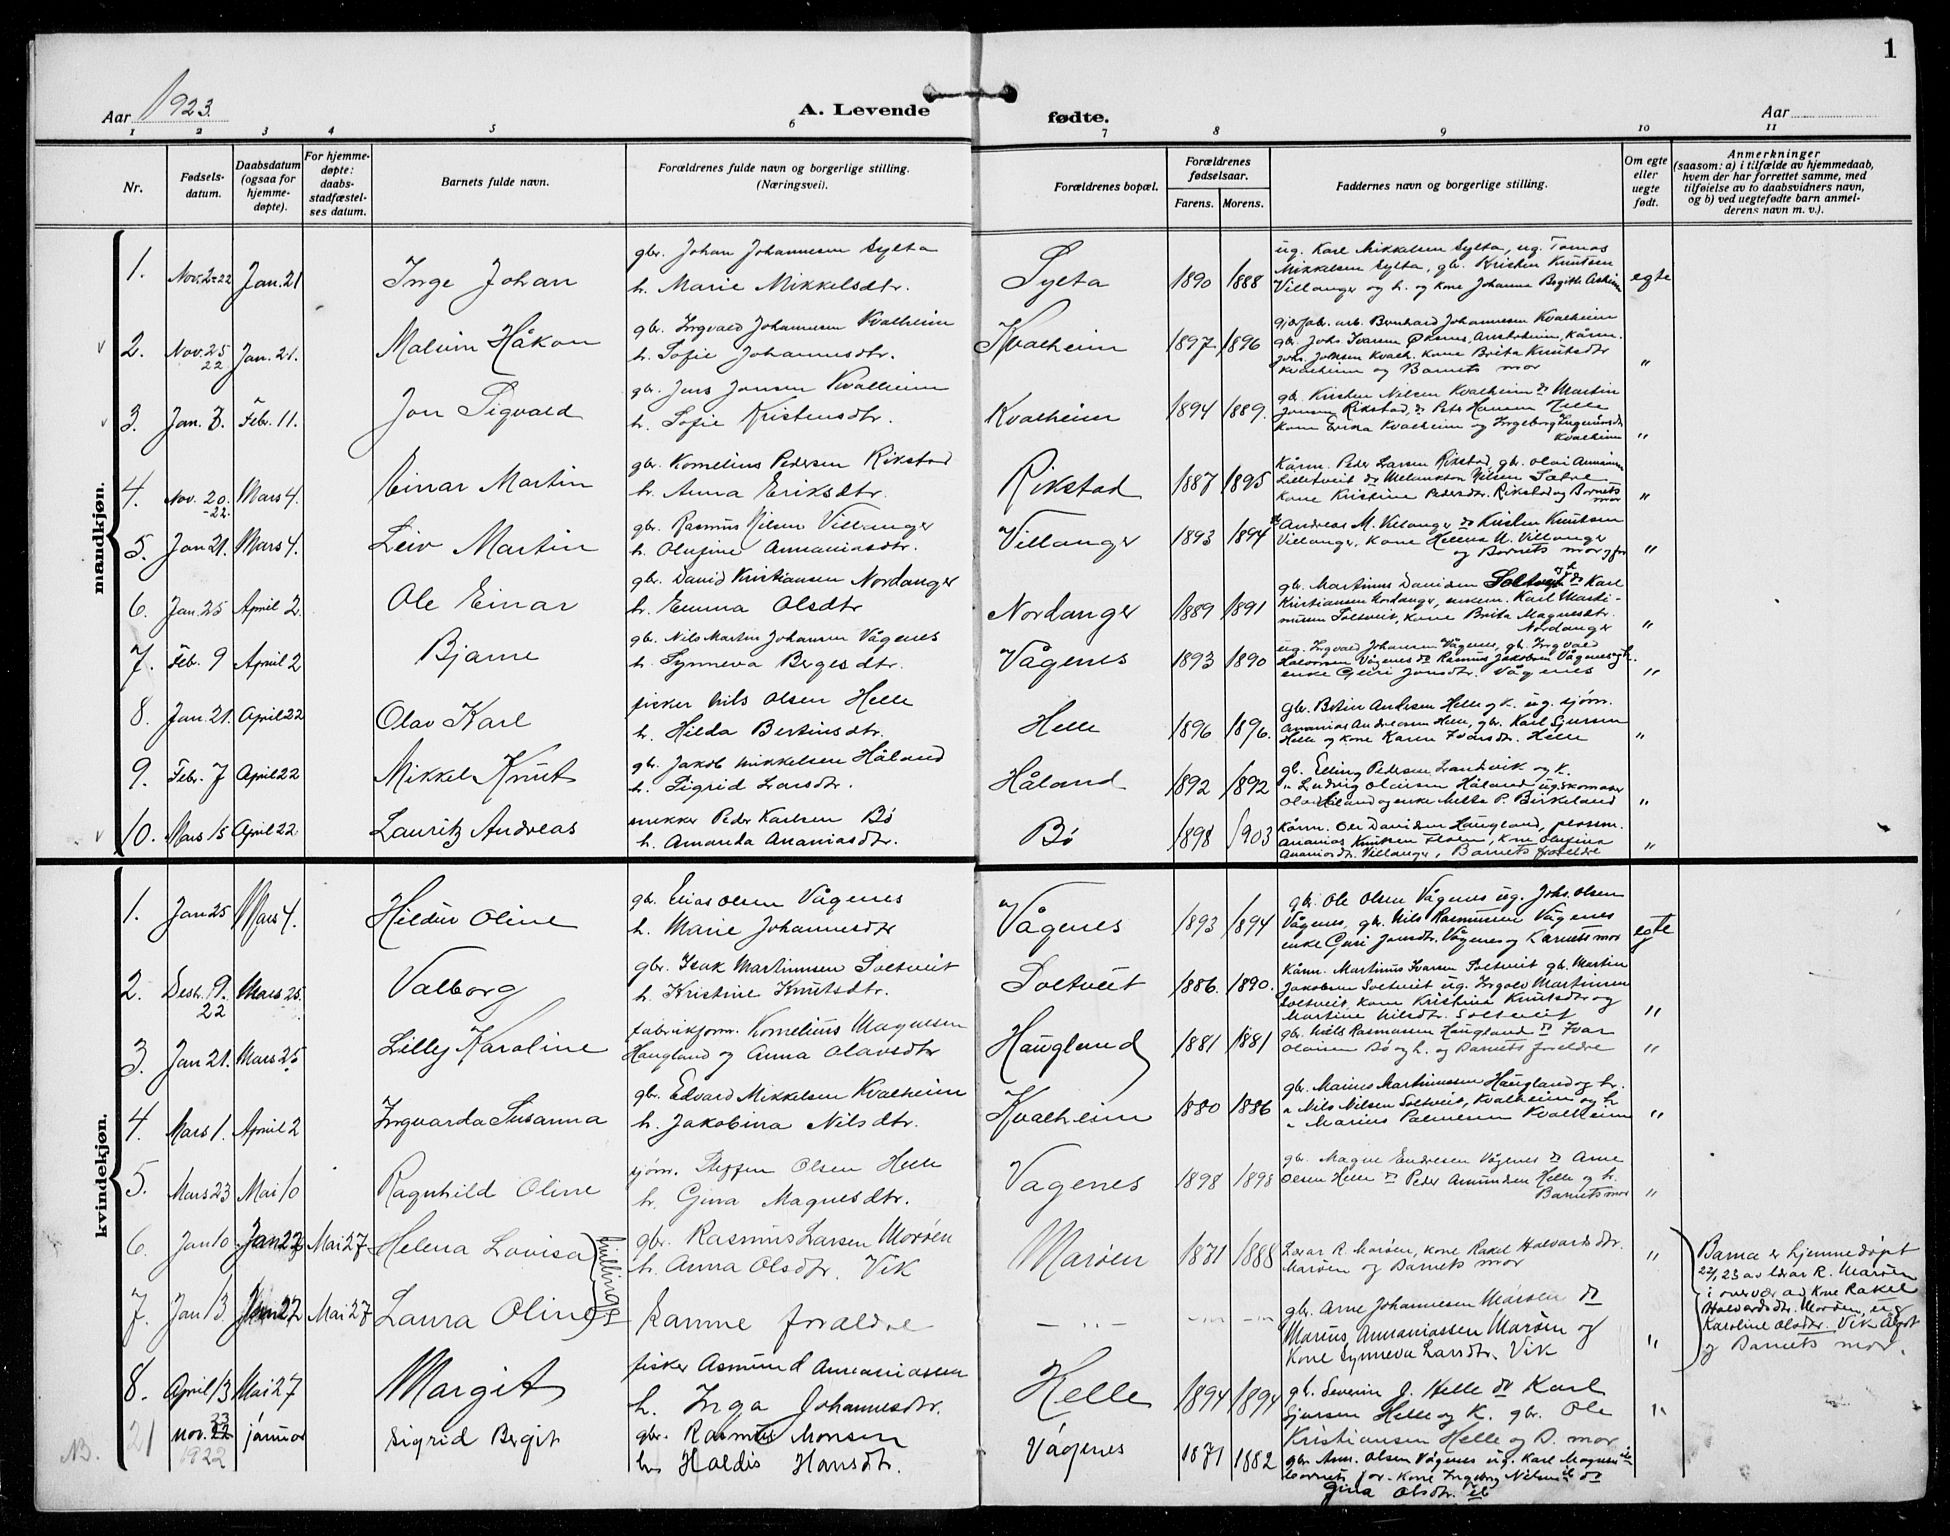 1
Aar 1923.
A. Levende
fødte.
Aar
1 2 3 4 5 6 7 8 9 10 11
Nr.
Fødsels-
datum.
Daabsdatum
(ogsaa for
hjemme-
døpte).
For hjemme-
døpte:
daabs-
stadfæstel-
ses datum.
Barnets fulde navn.
Forældrenes fulde navn og borgerlige stilling.
(Næringsvei).
Forældrenes bopæl.
Forældrenes
fødselsaar.
Farens. Morens.
Faddernes navn og borgerlige stilling.
Om egte
eller
uegte
født.
Anmerkninger
(saasom: a) i tilfælde av hjemmedaab,
hvem der har forrettet samme, med
tilføielse av to daabsvidners navn,
og b) ved uegtefødte barn anmel-
derens navn m. v.).
mandkjøn.
1. Nov. 2-22 Jan. 21 Inge Johan
gbr. Johan Johannesen Sylta
h. Marie Mikkelsdtr.
Sylta 1890 1888
ug. Karl Mikkelsen Sylta, ug. Tomas
Mikkelsen Sylta, gb. Kristen Knutsen
Villanger og h. og kone Johanne Birgitte
egte
v 2. Nov. 25 22 Jan. 21. Malvin Håkon
gbr. Ingvald Johannesen Kvalheim
h. Sofie Johannesdtr.
Kvalheim 1897. 1896
arb. Bernhard Johannesen Kvalheim
gbr. Johs Ivarsen
kone Brita Knutsdtr
Kvalheim og Barnets mor
"
v 3. Jan. 3. Febr. 11. Jon Sigvald
gbr. Jens Jonsen Kvalheim
h. Sofie Kristensdtr.
Kvalheim 1894 1889.
gb. Kristen Nilsen Kvalheim do Martin
Jonsen Rikstad, do Peter Hansen Helle
Kone Erika Kvalheim og Ingeborg
Kvalheim "
4. Nov. 20. -22. Mars 4. Einar Martin
gbr. Kornelius Pedersen Rikstad
h. Anna Eriksdtr.
Rikstad 1887 1895
Kårm. Peder Larsen Rikstad, gb. Olai
Lilletveit do Melankton Nilsen Sætre
Kone Kristine Pedersdtr. Rikstad og Barnets
mor "
5. Jan 21. Mars 4. Leiv Martin
gbr. Rasmus Nilsen Villanger
h. Olufine Annaniasdtr.
Villanger 1893 1894
Andreas M. Villanger do Kristen Knutsen
Villanger, Kone Helene N. Villanger
og Barnets mor og far "
6. Jan. 25 April 2. Ole Einar
gbr. David Kristiansen Nordanger
h. Emma Olsdtr
Nordanger 1889 1891
gb. Martinus Davidsen Soltveit do Karl
Kristiansen Nordanger, enkem. Karl Marti-
nusen Soltveit, Kone Brita Magnesdtr.
Nordanger "
7. Feb. 9 April 2 Bjarne
gbr. Nils Martin Johansen Vågenes
h. Synneva Bergesdtr.
Vågenes 1893 1890
ug. Ingvald Johansen Vågenes, gb. Ingvald
Halvorsen Vågenes do Rasmus Jakobsen Vågenes og h.
enke Guri Jonsdtr. Vågenes "
8. Jan. 21. April 22 Olav Karl
fisker Nils Olsen Helle
h. Hilda Bertinsdtr.
Helle 1896 1896.
gbr. Bertin Andersen Helle og k. ug. sjøm.
Ananias Andreasen Helle, gbr. Karl Sjursen
Helle og kone Karen Ivarsdtr. Helle "
9. Febr. 7 April 22 Mikkel Knut
gbr. Jakob Mikkelsen Håland
h. Sigrid Larsdtr.
Håland 1892 1892
gb. Elling Pedersen Landvik og k.
" Ludvig Olaisen Håland ug. skomaker
Olai Håland og enke Metta P. Birkeland "
v 10. Mars 15 April 22 Lauritz Andreas
snekker Peder Karlsen Bø
h. Amanda Ananiasdtr.
Bø 1898 1903
Kårm. Ole Davidsen Haugland,
Ananias Knutsen Kone Olufina
Ananiasdtr. Villanger, Barnets foreldre "
kvindekjøn.
1. Jan 25 Mars 4. Hildur Oline
gb. Elias Olsen Vågenes
h. Marie Johannesdtr
Vågenes 1893 1894
gbr. Ole Olsen Vågenes ug. Johs. Olsen
Vågenes, gb. Nils Rasmussen Vågenes
enke Guri Jonsdtr. Vågenes og Barnets mor egte
2. Desbr. 9. 22 Mars 25. Valborg
gbr. Isak Martinusen Soltveit
h. Kristine Knutsdtr.
Soltveit 1886. 1890.
Kårm. Martinus Ivarsen Soltveit gb. Martin
Jakobsen Soltveit ug. Ingolv Martinusen
Soltveit, kone Kristina Knutsdtr og
Martine Nilsdtr. Soltveit "
3. Jan 21. Mars 25 Lilly Karoline
fabrikform. Kornelius Magnesen
Haugland og Anna Olavsdtr
Haugland 1881 1881
gbr. Nils Rasmussen Haugland do Ivar
Olaisen Bø og h. og Barnets foreldre "
4. Mars 1. April 2 Ingvarda Susanna
gbr. Edvard Mikkelsen Kvalheim
h. Jakobina Nilsdtr.
Kvalheim 1880 1886
gbr. Marius Martinusen Haugland og h.
" Nils Nilsen Soltveit, Kvalheim og h
" Marius Kvalheim "
5. Mars 23 Mai 10 Ragnhild Oline
sjøm. Steffen Olsen Helle
h. Gina Magnesdtr.
Vågenes 1898 1898
gb. Magne Endresen Vågenes do Arne
Olsen Helle do Peder Amundsen Helle og h.
Barnets mor "
6. Jan 10 Jan 22 Mai 27 Helena Lovisa
tvillinger
gbr. Rasmus Larsen Marøen
h. Anna Olsdtr. Vik
Marøen 1871 1888
Lærar R. Marøen, kone Rakel Halvardsdtr.
Marøen og Barnets mor "
Barna er hjemmedøpt
22/1 23 av lærar R. Marøen
i overvær av kone Rakel
Halvardsdtr. Marøen, ug
Karoline Olsdtr. Vik
og Barnets mor.
7. Jan 13 Jan 22 Mai 27 Laura Oline
samme forældre
- " -
gbr. Arne Johannesen Marøen do
Marius Annaniassen Marøen og
Kone Synneva Larsdtr. Vik "
8. April 13 Mai 27 Margit
fisker Asmund Annaniassen
h. Inga Johannesdtr.
Helle 1894 1894
gb. Severin J. Helle do Karl
Sjursen Helle og K. gbr. Ole
Kristiansen Helle og B. mor "
NB. 21 nov. 22 1922 januar Sigrid Bergit
gbr. Rasmus Monsen
h. Haldis Hansdtr.
Vågenes 1871 1882
gbr. Ans. Olsen Vågenes ug. Karl Magnesen
Barnets far - Kone Ingeborg Nilsen do
Gina Olsdtr.